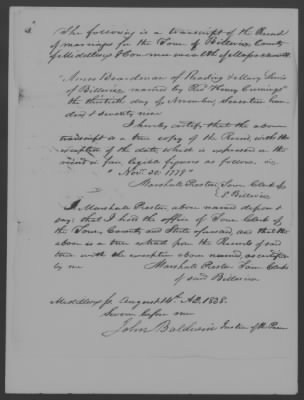 The following is a transcript of the Record
of marriages for the Town of Billerica County
of Middlesex & Commonwealth of Massachusetts
"Amos Boardman of Reading & Mary Lewis
of Billerica married by Revd Henry Cummings"
the thirtieth day of November, seventeen hun-
dred & seventy nine
I hereby certify that the above
transcript is a true copy of the Record, with the
exception of the date, which is expressed in the
record in fair legible figures as follows, viz
"Nov. 30: 1779"
Marshall Preston Town Clerk of
Billerica
I, Marshall Preston, above named depose &
say; that I hold the office of Town Clerk of
the Town, County and State aforesaid, and that the
above is a true extract from the Records of said
town with the exception above named, as certified
by me
Marshall Preston Town Clerk
of said Billerica
Middlesex ss August 14th AD. 1838.
Sworn before me
John Baldwin Justice of the Peace